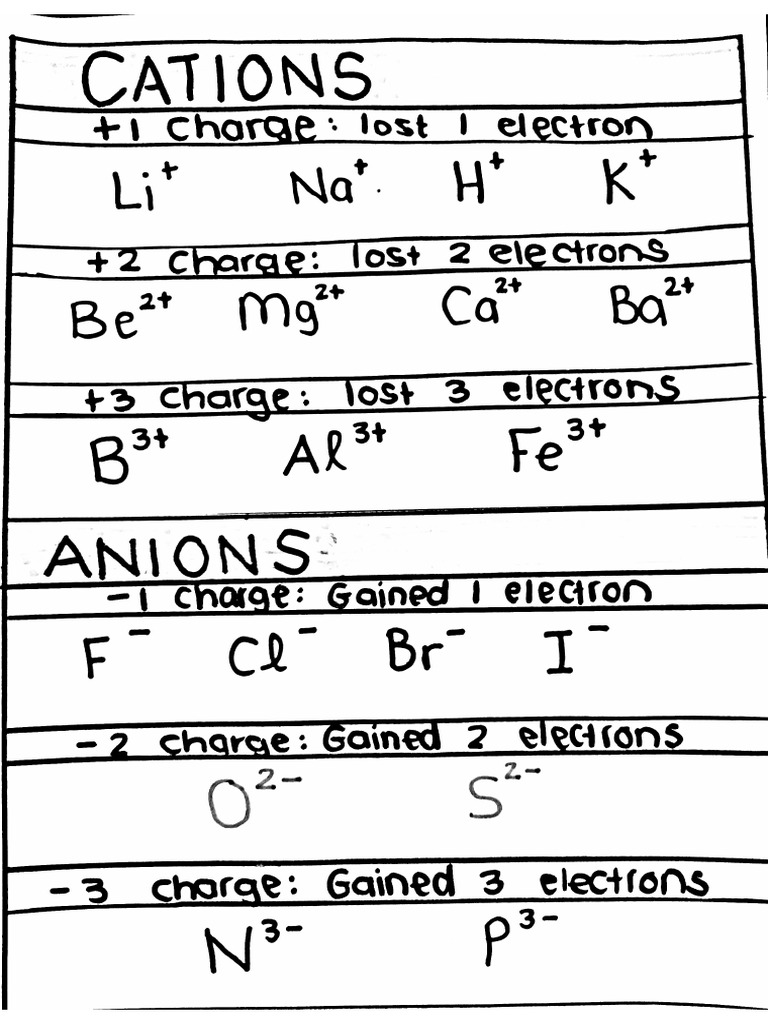 CATIONS
+1 charge: lost 1 electron
Li⁺ Na⁺ H⁺ K⁺
+2 charge: lost 2 electrons
Be²⁺ Mg²⁺ Ca²⁺ Ba²⁺
+3 charge: lost 3 electrons
B³⁺ Al³⁺ Fe³⁺
ANIONS
-1 charge: Gained 1 electron
F⁻ Cl⁻ Br⁻ I⁻
-2 charge: Gained 2 electrons
O²⁻ S²⁻
-3 charge: Gained 3 electrons
N³⁻ P³⁻